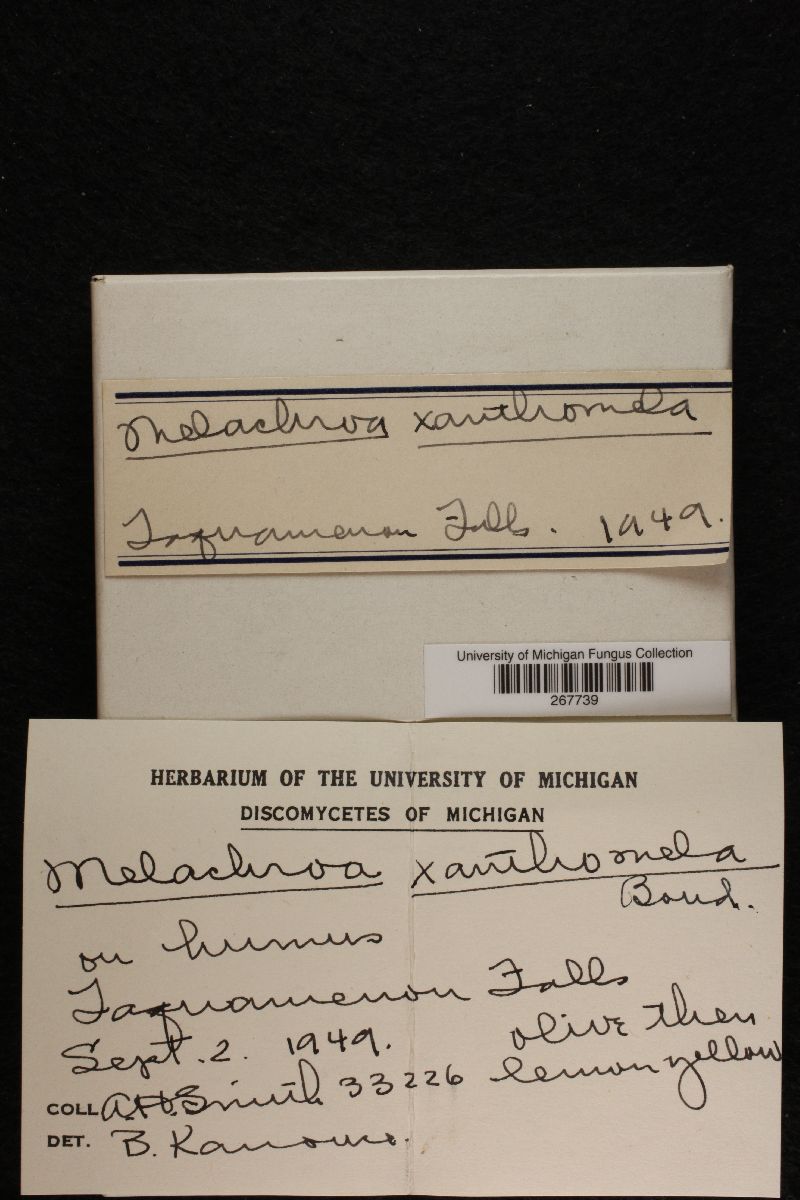 Melachroa xanthomela
Taquamenon Falls. 1949.
University of Michigan Fungus Collection
267739
HERBARIUM OF THE UNIVERSITY OF MICHIGAN
DISCOMYCETES OF MICHIGAN
Melachroa xanthomela
Boud.
on humus
Taquamenon Falls
Sept. 2. 1949. olive then
COLL A.H. Smith 33226 lemon yellow
DET. B. Kanouse.